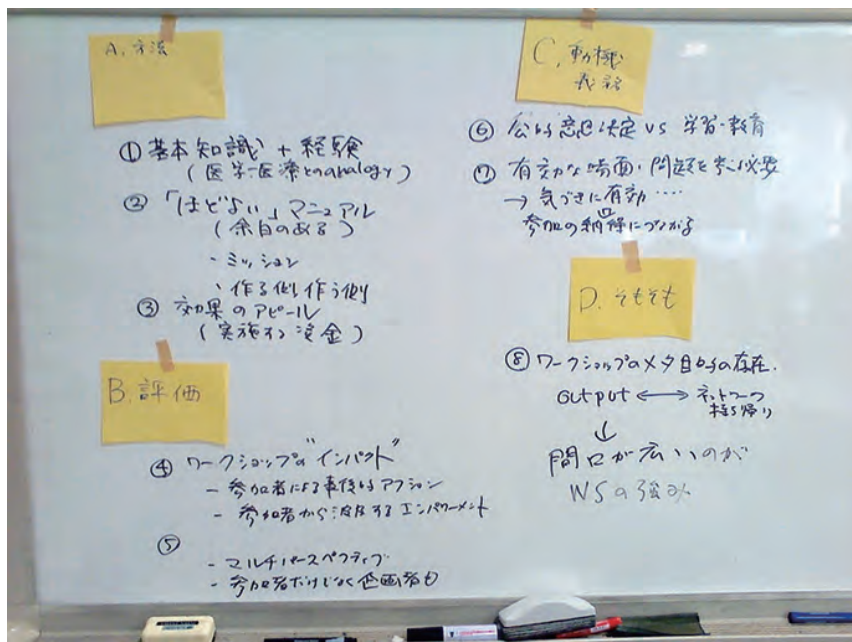 A. 方法
① 基本知識 + 経験
(医学-医療とのanalogy)
② 「ほどよい」マニュアル
(余白のある)
・ミッション
・作る側 使う側
③ 効果のアピール
(実施する資金)
B. 評価
④ ワークショップの"インパクト"
- 参加者による事後的アクション
- 参加者から波及するエンパワーメント
⑤
- マルチパースペクティブ
- 参加者だけじゃなく企画者も
C. 動機
⑥ 公的意思決定 VS 学習・教育
⑦ 有効な場面・問題を考える必要
→ 気づきに有効‥‥
参加の納得につながる
D. そもそも
⑧ ワークショップのメタ目的の存在.
output ⟷ ネットワーク
持ち帰り
↓
間口が広いのが
WSの強み